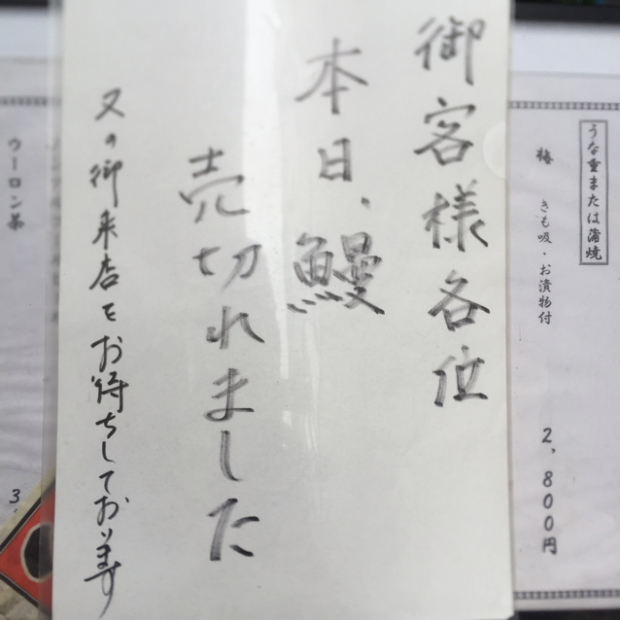 うな重または蒲焼
梅 きも吸・お漬物付 2,800円
御客様各位
本日、鰻
売切れました
又の御来店をお待ちしております
ウーロン茶 3